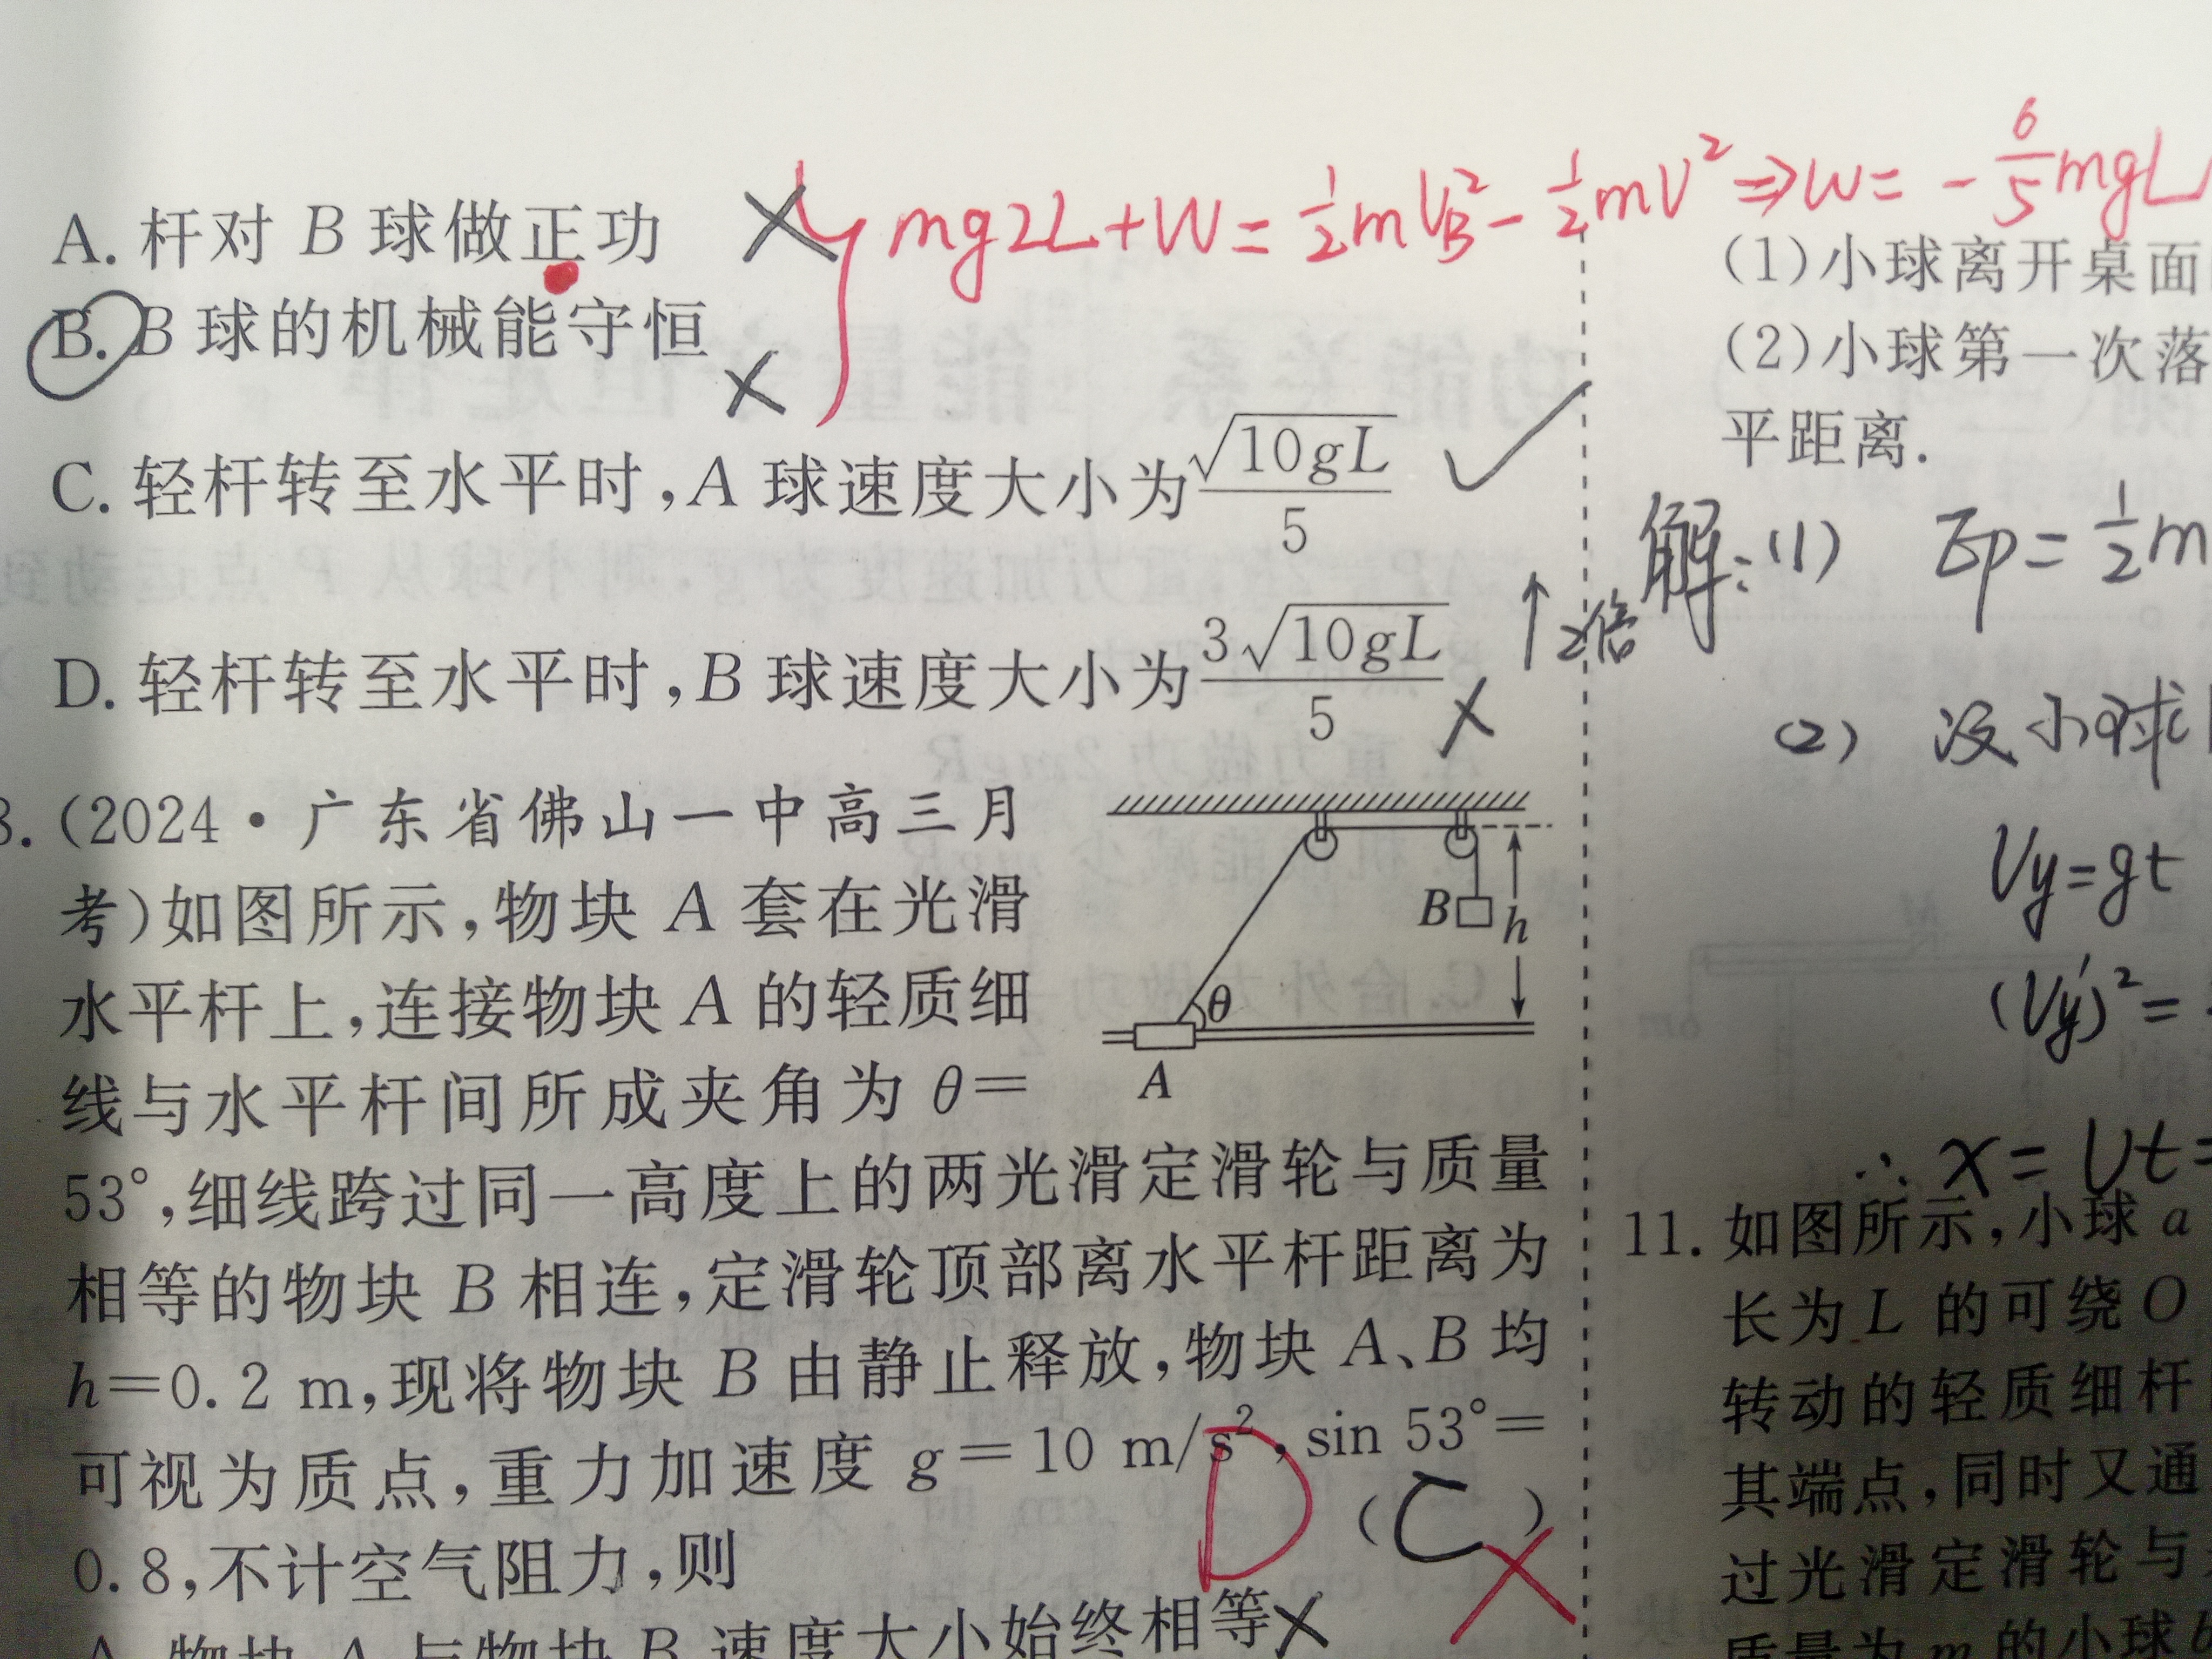 mg2L+W=½mV_B²-½mV²⇒W=-6/5mgL
A. 杆对 B 球做正功
B. B 球的机械能守恒
C. 轻杆转至水平时,A 球速度大小为√10gL/5
D. 轻杆转至水平时,B 球速度大小为3√10gL/5
2倍
3.(2024·广东省佛山一中高三月
考)如图所示,物块 A 套在光滑
水平杆上,连接物块 A 的轻质细
线与水平杆间所成夹角为 θ=
53°,细线跨过同一高度上的两光滑定滑轮与质量
相等的物块 B 相连,定滑轮顶部离水平杆距离为
h=0.2 m,现将物块 B 由静止释放,物块 A、B 均
可视为质点,重力加速度 g=10 m/s²,sin 53°=
0.8,不计空气阻力,则
D (C)
A. 物块 A 与物块 B 速度大小始终相等
B
h
θ
A
(1)小球离开桌面
(2)小球第一次落
平距离.
解:(1) Ep=½m
(2) 设小球
Vy=gt
(Vy′)²=
∴x=Vt=
11. 如图所示,小球 a
长为 L 的可绕 O
转动的轻质细杆
其端点,同时又通
过光滑定滑轮与
质量为 m 的小球 b